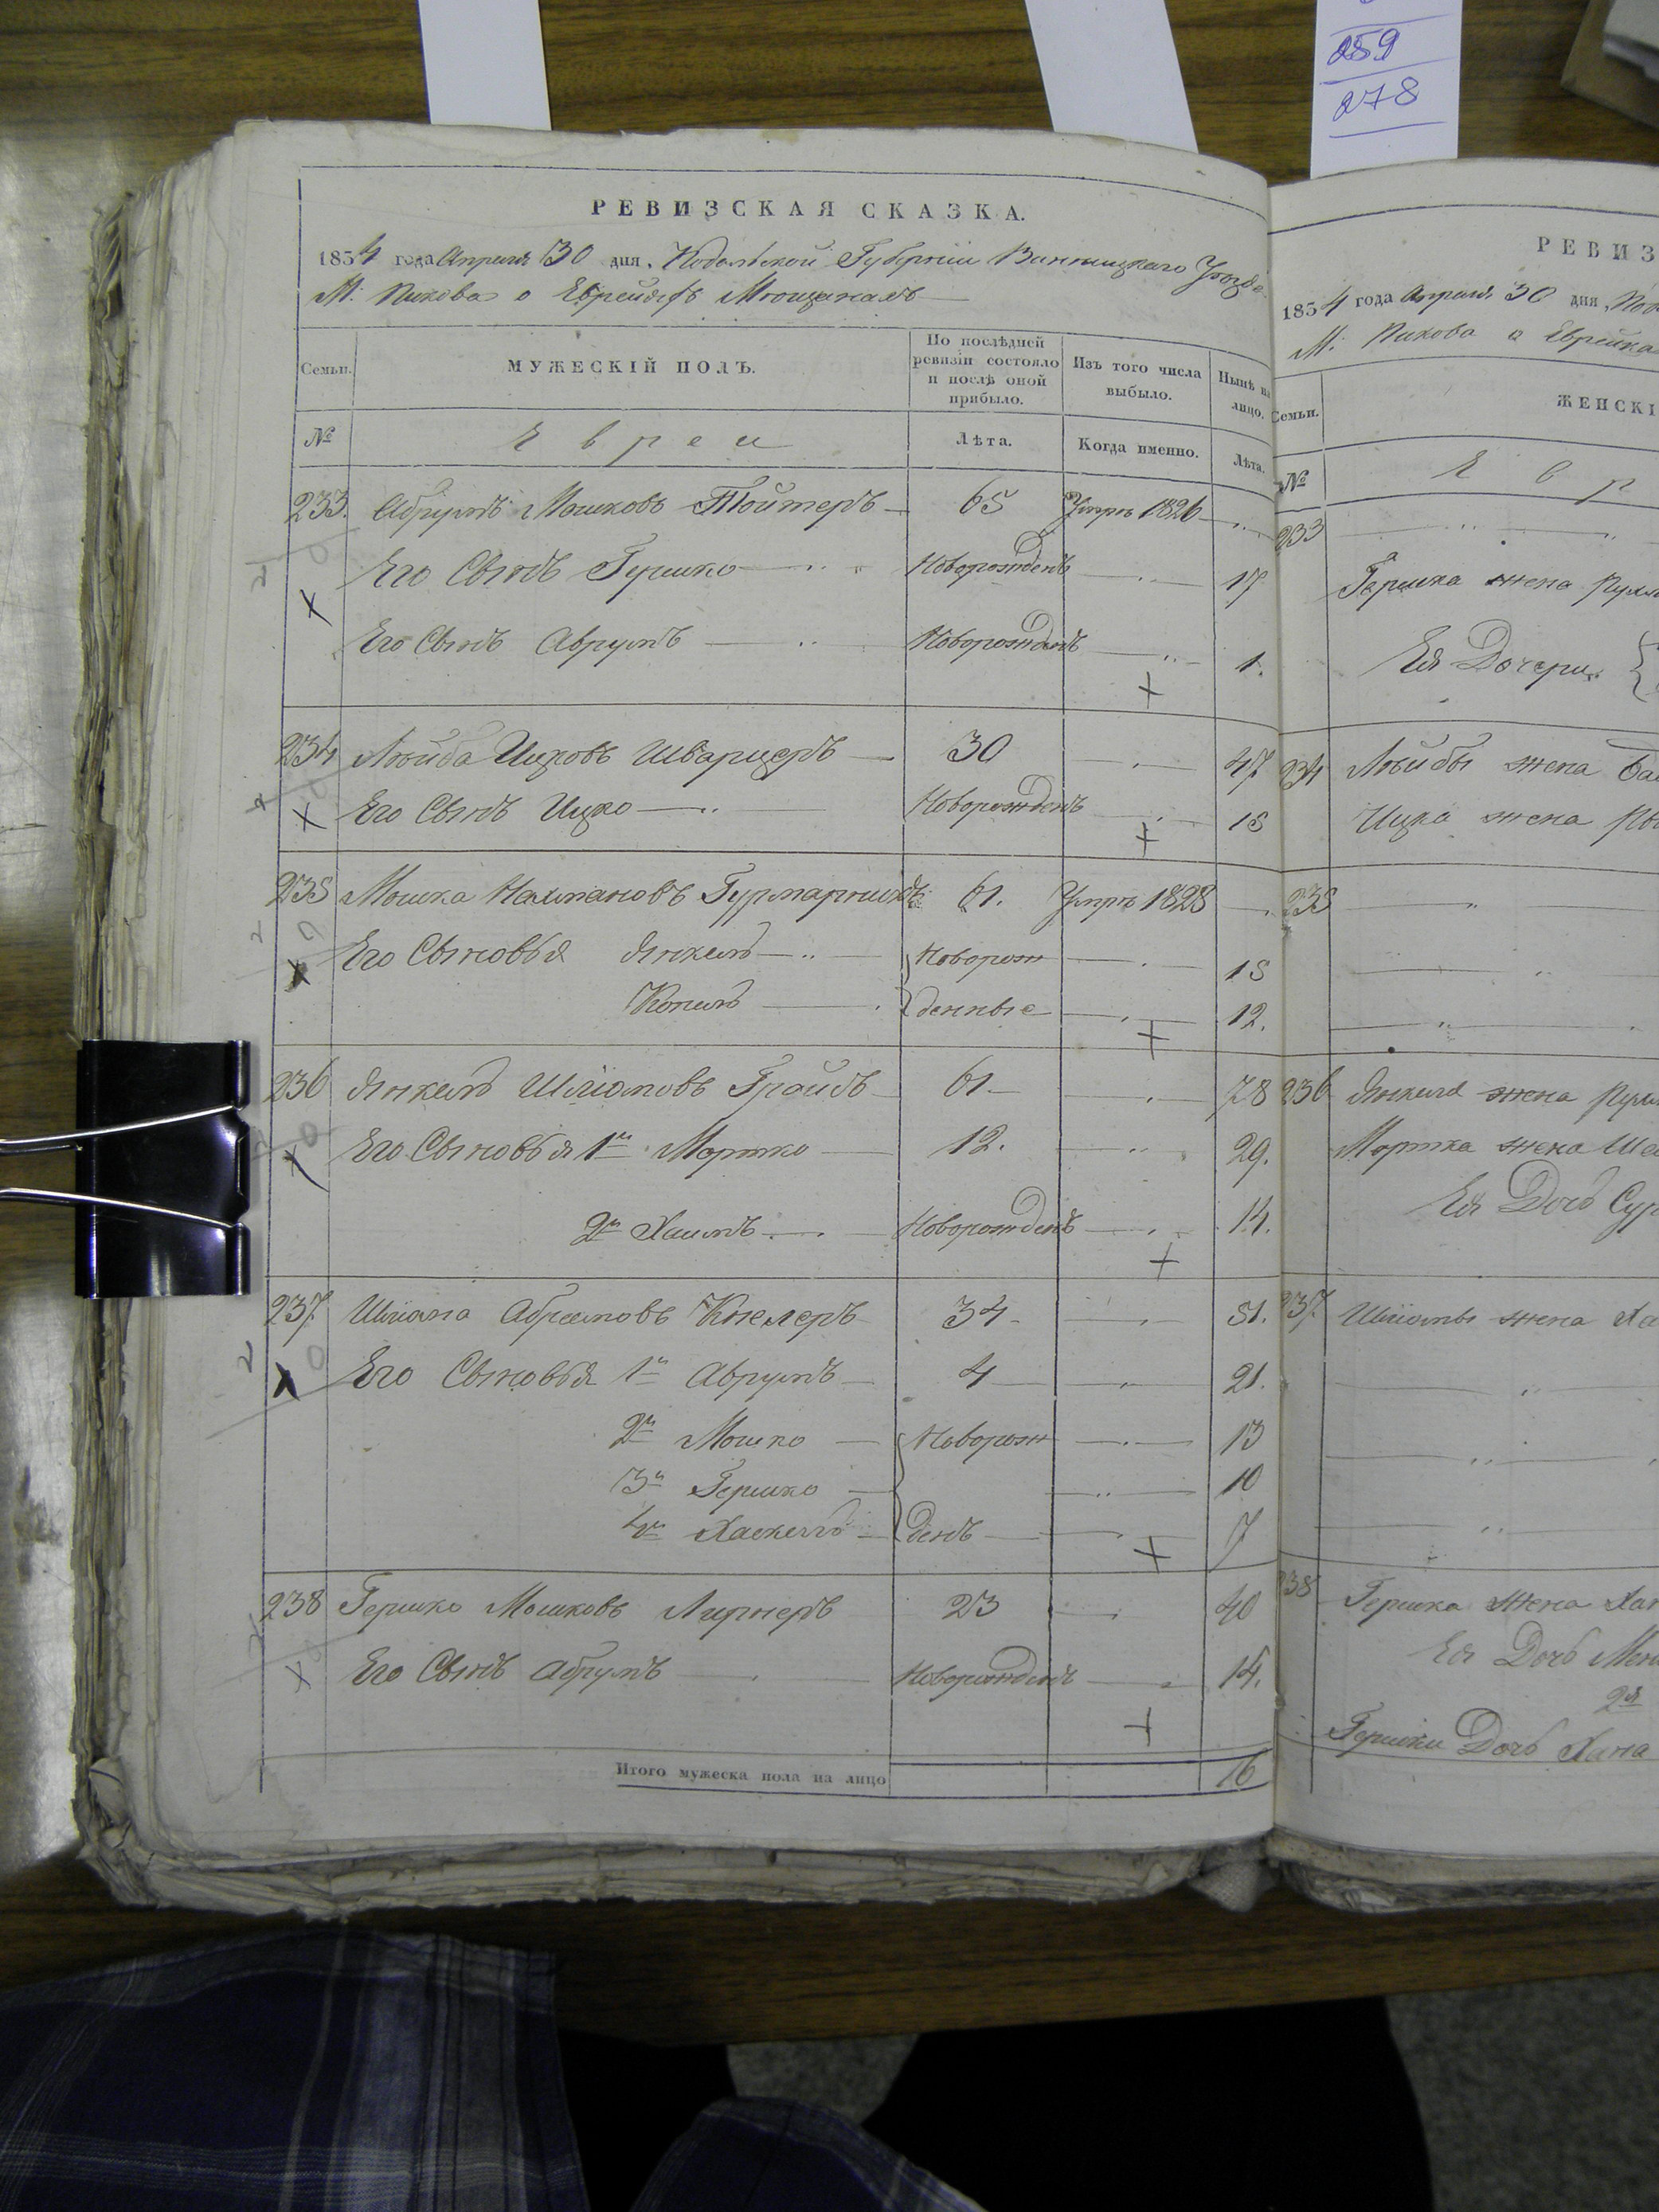 259
278
РЕВИЗСКАЯ СКАЗКА.
1854 года Апреля 30 дня, Подольской Губернiи Винницкаго Уезда
М: Пикова о Евреяхъ Мещанахъ
Семьи. МУЖЕСКIЙ ПОЛЪ. По послѣдней ревизiи состояло и послѣ оной прибыло. Изъ того числа выбыло. Нынѣ на лицо.
№ Евреи Лѣта. Когда именно. Лѣта.
233. Абрумъ Мошковъ Тойтеръ 65 Умръ 1826
Его Сынъ Гершко Новорожденъ 17
Его Сынъ Аврумъ Новорожденъ 1.
234 Лейба Ицковъ Шварцеръ 30 47
Его Сынъ Ицко Новорожденъ 18
235 Мошка Нахмановъ 61. Умръ 1828
Его Сыновья Янкель Новорож 15
Копель денные 12.
236 Янкель Шлiомовъ Гройсъ 61 78
Его Сыновья 1й Мортко 12. 29.
2й Хаимъ Новорожденъ 14.
237. Шлiома Абрамовъ Кнелеръ 34 51.
Его Сыновья 1й Аврумъ 4 21.
2й Мошко Новорож 13
3й Гершко 10
4й Хаскель денъ 7
238 Гершко Мошковъ Лирнеръ 23 40
Его Сынъ Абрумъ Новорожденъ 14.
Итого мужеска пола на лицо 16
РЕВИЗ
1854 года Апреля 30 дня, Под
М: Пикова о Еврейка
Семьи. ЖЕНСКI
№ Евр
233
Гершка жена Рухл
Ея Дочери
234 Лейбы жена Ба
Ицка жена
235
236 Янкеля жена
Мортка жена Ше
Ея Дочь Сур
237. Шлiомы жена Ха
238 Гершка жена Хан
Ея Дочь Мен
2я
Гершки Дочь Хана